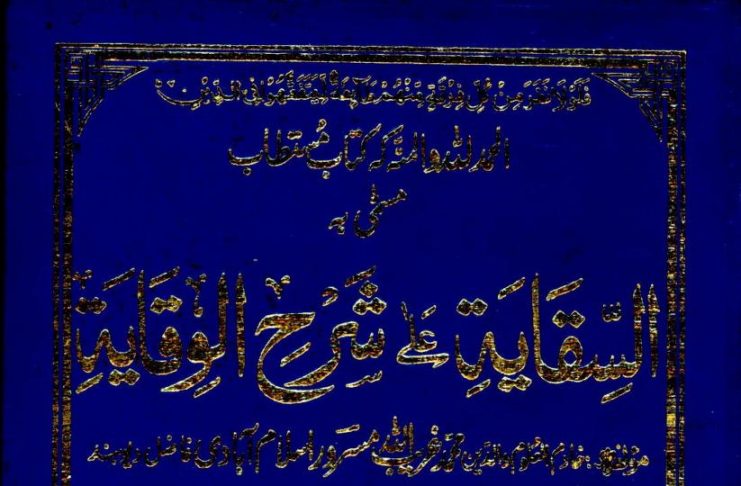 فَلَوْلَا نَفَرَ مِنْ كُلِّ فِرْقَةٍ مِنْهُمْ طَائِفَةٌ لِيَتَفَقَّهُوا فِى الدِّيْنِ
الحمد للہ والمنہ کہ کتاب مُستطاب
مسمّٰی بہ
السِّقَايَةِ عَلٰى شَرْحِ الْوِقَايَةِ
خادم العلوم والدین محمد غریب اللہ مسرور اسلام آبادی فاضل دیوبند